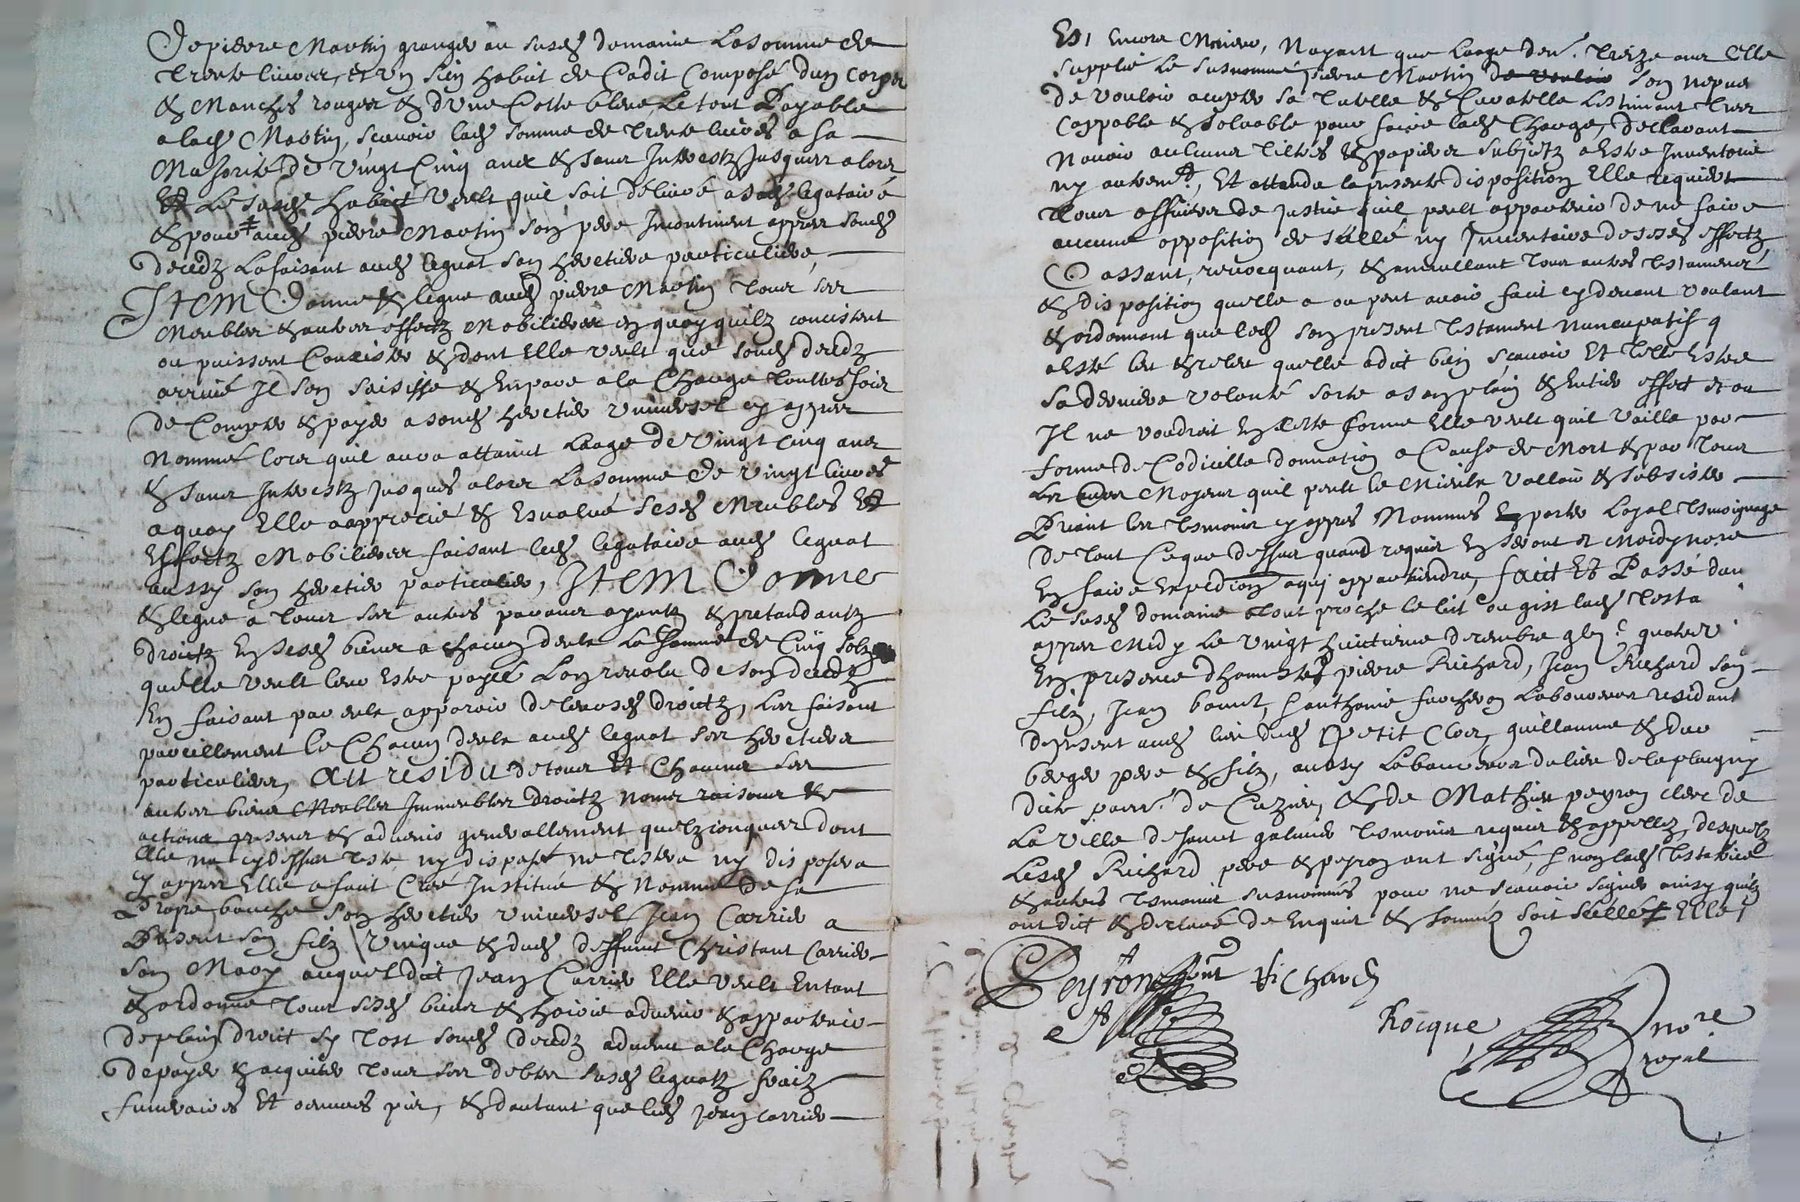 De pierre Martin granger au susd domaine La somme de
Trente livres, et Un sien habit de Cadit Composé dun corps
& Manches rouges & dUne Cotte bleue, Le tout Payable
a lad Martin, scavoir lad somme de Trente livres a sa
Majorité de Vingt Cinq ans & sans Interestz Jusques alors
Et Le susd habict Veult quil soit délivré a sad legataire
& pour aud pierre Martin son pere Incontinent appres soud
decedz La faisant aud legat son heretiere particuliere,
ITEM Donne & legue aud pierre Martin Tous ses
Meubles & autres effectz Mobiliers en quoy quilz concistent
ou puissent Concister & dont Elle Veult que soud decedz
arrivé Il sen saisisse & Empare a la Charge Touttesfois
de Compter & payer a soud heretier Universel cy appres
Nommé Lors quil aura attainct Laage de Vingt Cinq ans
& sans Interestz Jusques alors La somme de Vingt livres
a quoy Elle a apprecié & Esvalué sesd Meubles Et
Effectz Mobiliers faisant led legataire aud legat
aussy son heretier particulier, ITEM Donne
& legue a Tous ses autres parans ayantz & pretandantz
droitz En sesd biens a chacun deulx La somme de Cinq solz
quelle Veult leur Estre payee Lan revolu de son decedz
En faisant par eulx apparoir de leursd droitz, Les faisant
pareillement le Chacun deulx aud legat ses heretiers
particuliers, Au residu de tous Et Chacuns ses
autres biens Meubles Immeubles droitz noms raisons &
actions presens & advenir generallement quelzconques dont
Elle na cy dessus testé, ny disposé ne testera ny disposera
Cy appres Elle a faict Creé Institué & Nommé de sa
Propre bouche son heretier Universel Jean Carrier a
Present son filz Unique & dud deffunt Christant Carrier
son Mary auquel dict Jean Carrier Elle Veult Entant
& ordonne Tous sesd biens & hoirie advenir & appartenir
de plain droict sy tost soud decedz advenu a la Charge
de payer & acquiter Tous ses debtes susd legatz fraiz
funeraires Et oeuvres pies, & dautant que led Jean carrier
Est Encore Mineur, Nayant que Laage denv. Treize ans Elle
supplie Le susnommé pierre Martin de vouloir son nepveu
de Vouloir accepter sa Tutelle & Curatelle Lestimant Tres
Cappable & solvable pour faire lad Charge, declarant
Navoir aulcuns tiltres & papiers subjetz a Estre Inventorié
ny autremt, Et attendu la presente disposition Elle requiert
Tous officiers de Justice quil peult appartenir de ne faire
aucune opposition de séellé ny Inventaire de sesd effectz
Cassant, revocquant, & annullant Tous autres testamens
& disposition quelle a ou peut avoir fait cy devant Voulant
& ordonnant que led son present Testament nuncupatif q
a Esté leu & releu quelle a dit bien scavoir Et Telle Estre
sa derniere Volonté sorte a son plain & Entier effect et ou
Il ne Voudroit En ceste forme Elle Veult quil Vaille par
forme de Codicille donnation a Cause de Mort & par Tous
Les autres Moyens quil peult le Mieulx Valloir & subsister
Priant les Tesmoins cy appres Nommés En porter Loyal Tesmoignage
De Tout Ceque dessus quand requis En seront Et Moidnore
En faire Expedion a qui appartiendra, faict Et Passé dan
Le susd domaine Tout proche le lict ou gist lad Testa
appres Midy Le Vingt huictieme decembre quatre
En presence dhonnestes pierre Richard, Jean Richard son
filz, Jean bonnet, & anthoine faucheron Laboureurs residant
de present aud lieu dud Petit Clos, guillaume & duc
berger pere & filz, aussy Laboureurs du lieu de
dicte parr. de Cuzieu, & de Mathieu peyron clerc de
La Ville de sainct galmier Tesmoins requis & appellez, desquelz
Lesd Richard pere & peyron ont signé, & non lad Testatrice
& autres Tesmoins susnommés pour ne scavoir signer ainsy quilz
ont dict & declaré de Enquis & sommez soit séellé Elle
Peyron P Richard
Rocque nore
royal